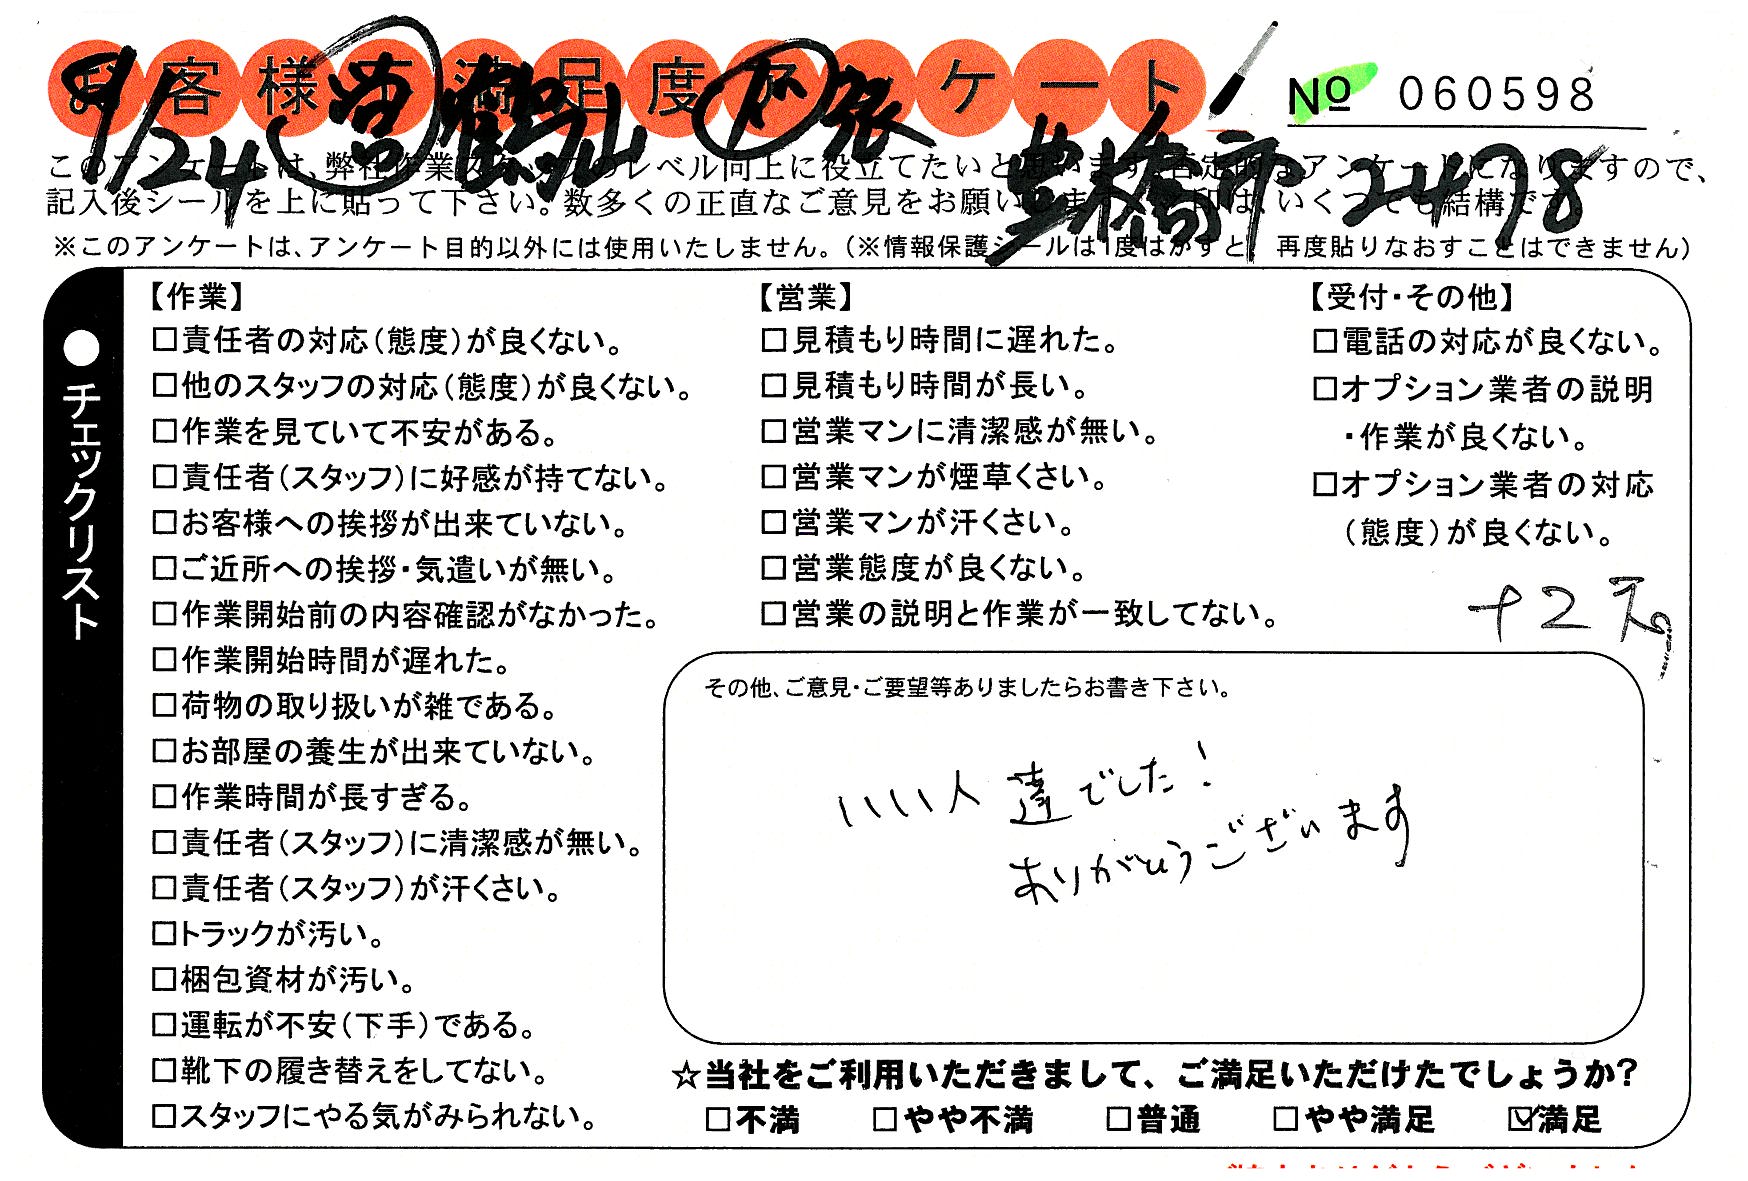 お客様 満足度アンケート
№ 060598
9/24 (営) 鶴山 (下) 張
豊橋市 2478
このアンケートは、弊社作業スタッフのレベル向上に役立てたいと思います。否定的なアンケートになりますので、
記入後シールを上に貼って下さい。数多くの正直なご意見をお願いします。 印は、いくつでも結構です。
※このアンケートは、アンケート目的以外には使用いたしません。(※情報保護シールは1度はがすと 再度貼りなおすことはできません)
●チェックリスト
【作業】
□責任者の対応(態度)が良くない。
□他のスタッフの対応(態度)が良くない。
□作業を見ていて不安がある。
□責任者(スタッフ)に好感が持てない。
□お客様への挨拶が出来ていない。
□ご近所への挨拶・気遣いが無い。
□作業開始前の内容確認がなかった。
□作業開始時間が遅れた。
□荷物の取り扱いが雑である。
□お部屋の養生が出来ていない。
□作業時間が長すぎる。
□責任者(スタッフ)に清潔感が無い。
□責任者(スタッフ)が汗くさい。
□トラックが汚い。
□梱包資材が汚い。
□運転が不安(下手)である。
□靴下の履き替えをしてない。
□スタッフにやる気がみられない。
【営業】
□見積もり時間に遅れた。
□見積もり時間が長い。
□営業マンに清潔感が無い。
□営業マンが煙草くさい。
□営業マンが汗くさい。
□営業態度が良くない。
□営業の説明と作業が一致してない。
【受付・その他】
□電話の対応が良くない。
□オプション業者の説明
・作業が良くない。
□オプション業者の対応
(態度)が良くない。
+2
その他、ご意見・ご要望等ありましたらお書き下さい。
いい人達でした!
ありがとうございます
☆当社をご利用いただきまして、ご満足いただけたでしょうか?
□不満 □やや不満 □普通 □やや満足 ☑満足